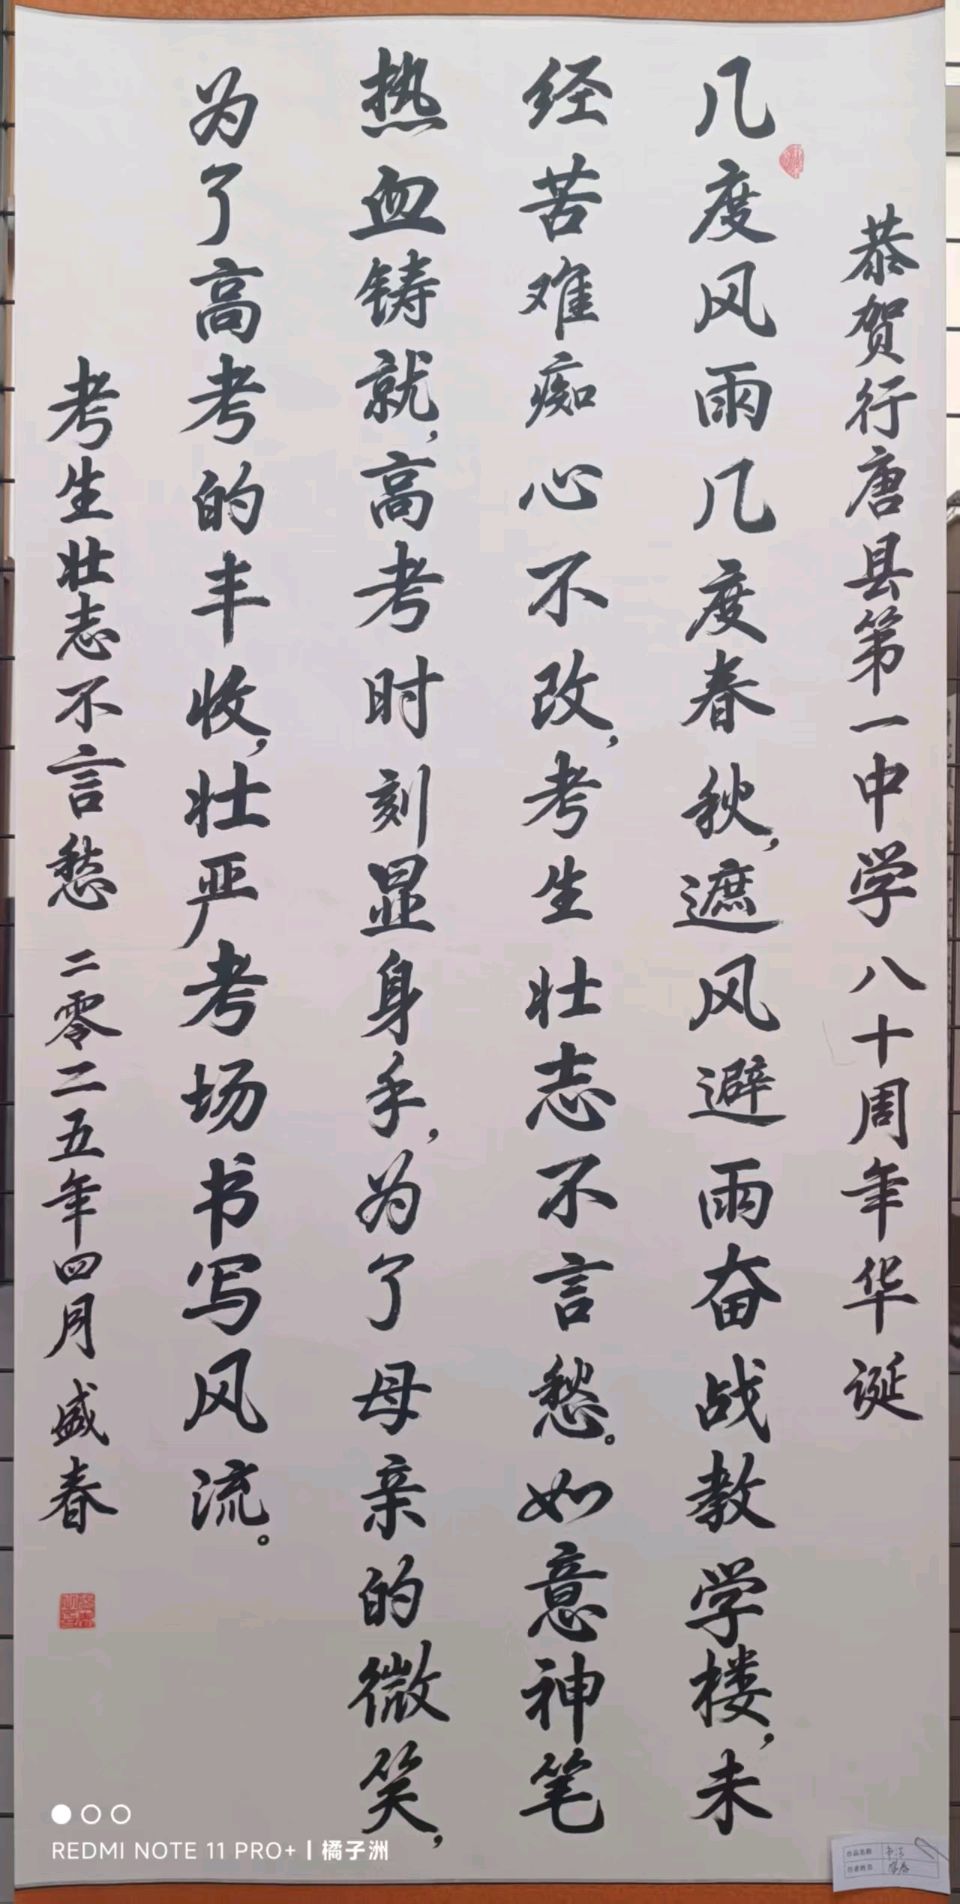 恭贺行唐县第一中学八十周年华诞
几度风雨几度春秋,遮风避雨奋战教学楼,未
经苦难痴心不改,考生壮志不言愁。如意神笔
热血铸就,高考时刻显身手,为了母亲的微笑,
为了高考的丰收,壮严考场书写风流。
考生壮志不言愁 二零二五年四月 盛春
REDMI NOTE 11 PRO+ | 橘子洲
作品名称
作者姓名